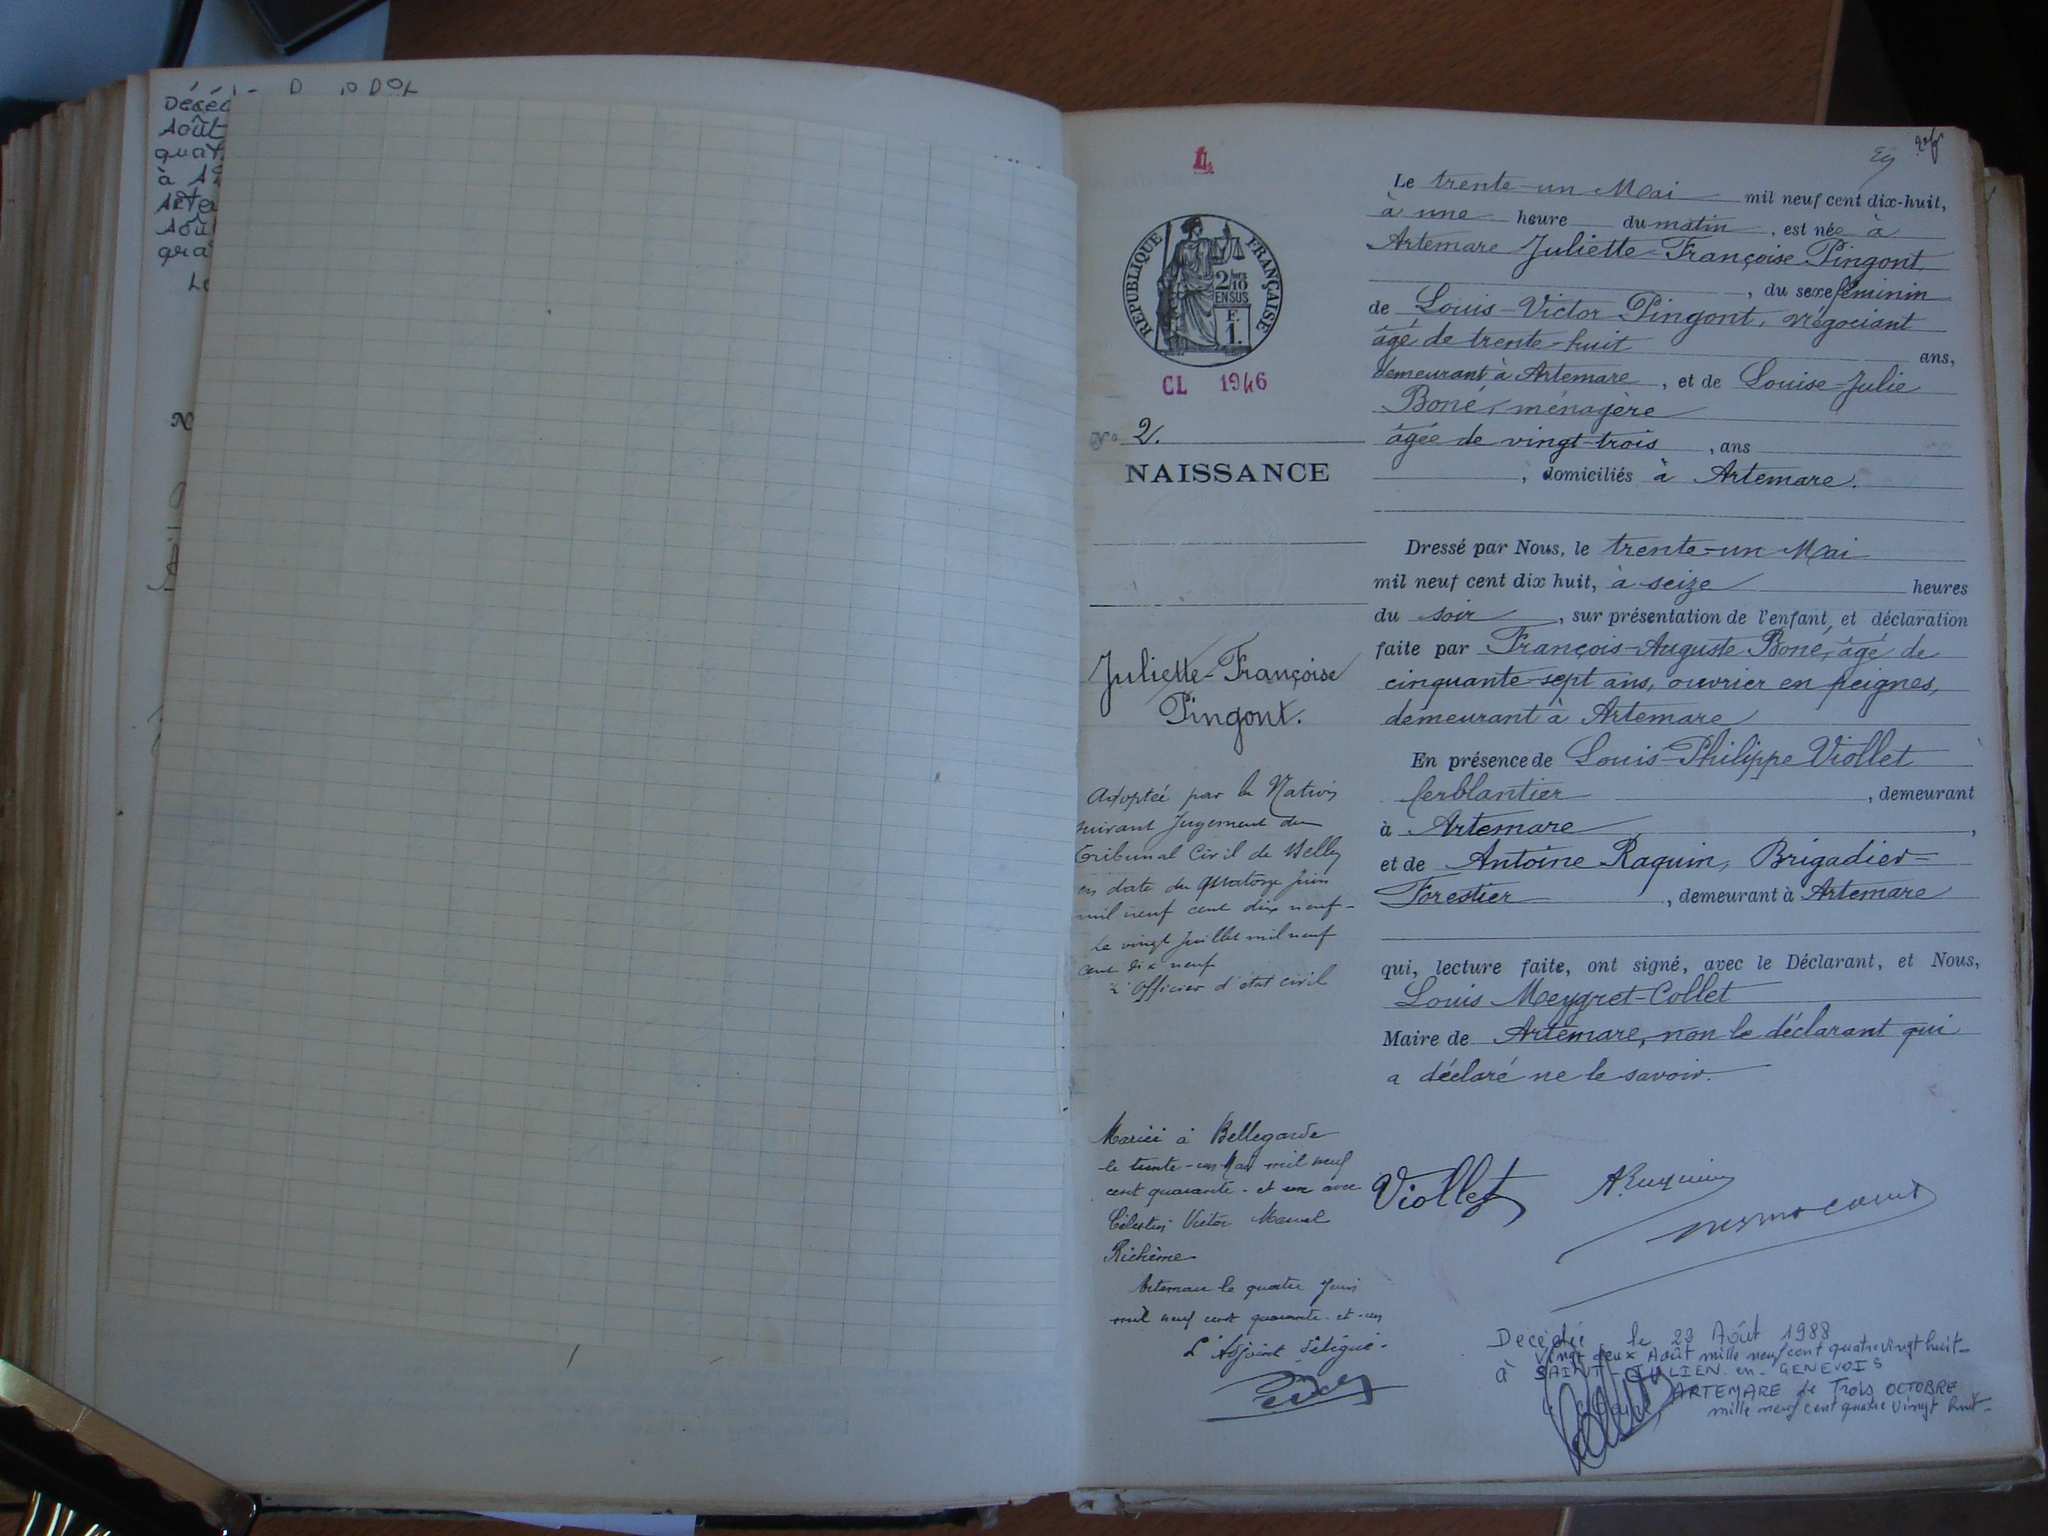 Août
à
L
RÉPUBLIQUE FRANÇAISE
2/10
EN SUS
F.
1.
CL 1946
No 2.
NAISSANCE
Juliette-Françoise
Pingont.
Adoptée par la Nation
suivant Jugement du
Tribunal Civil de Belley
en date du quatorze juin
mil neuf cent dix neuf-
Le vingt juillet mil neuf
cent dix neuf
L'Officier d'état civil
Mariée à Bellegarde
le trente-un Mai mil neuf
cent quarante-et un avec
Célestin Victor Marcel
Richème
Artemare le quatre Juin
mil neuf cent quarante-et-un
L'Adjoint délégué.
Le trente-un Mai mil neuf cent dix-huit,
à une heure du matin, est née à
Artemare Juliette-Françoise Pingont
, du sexe féminin
de Louis-Victor Pingont, négociant
âgé de trente-huit ans,
demeurant à Artemare, et de Louise-Julie
Bone, ménagère
âgée de vingt-trois, ans
, domiciliés à Artemare.
Dressé par Nous, le trente-un Mai
mil neuf cent dix huit, à seize heures
du soir, sur présentation de l'enfant, et déclaration
faite par François-Auguste Bone, âgé de
cinquante-sept ans, ouvrier en peignes,
demeurant à Artemare
En présence de Louis-Philippe Viollet
ferblantier, demeurant
à Artemare,
et de Antoine Raquin, Brigadier-
Forestier, demeurant à Artemare
qui, lecture faite, ont signé, avec le Déclarant, et Nous,
Louis Meygret-Collet
Maire de Artemare, non le déclarant qui
a déclaré ne le savoir.
Viollet
Decédée le 22 Août 1988
vingt deux Août mille neuf cent quatre vingt huit-
à SAINT-JULIEN-en-GENEVOIS
ARTEMARE le Trois OCTOBRE
mille neuf cent quatre vingt huit-